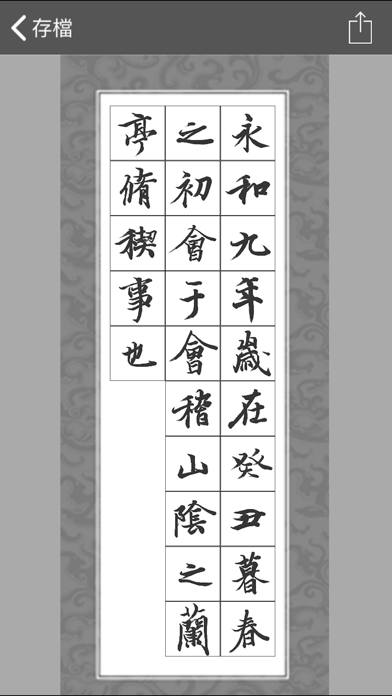 存檔
永和九年歲在癸丑暮春
之初會于會稽山陰之蘭
亭脩稧事也